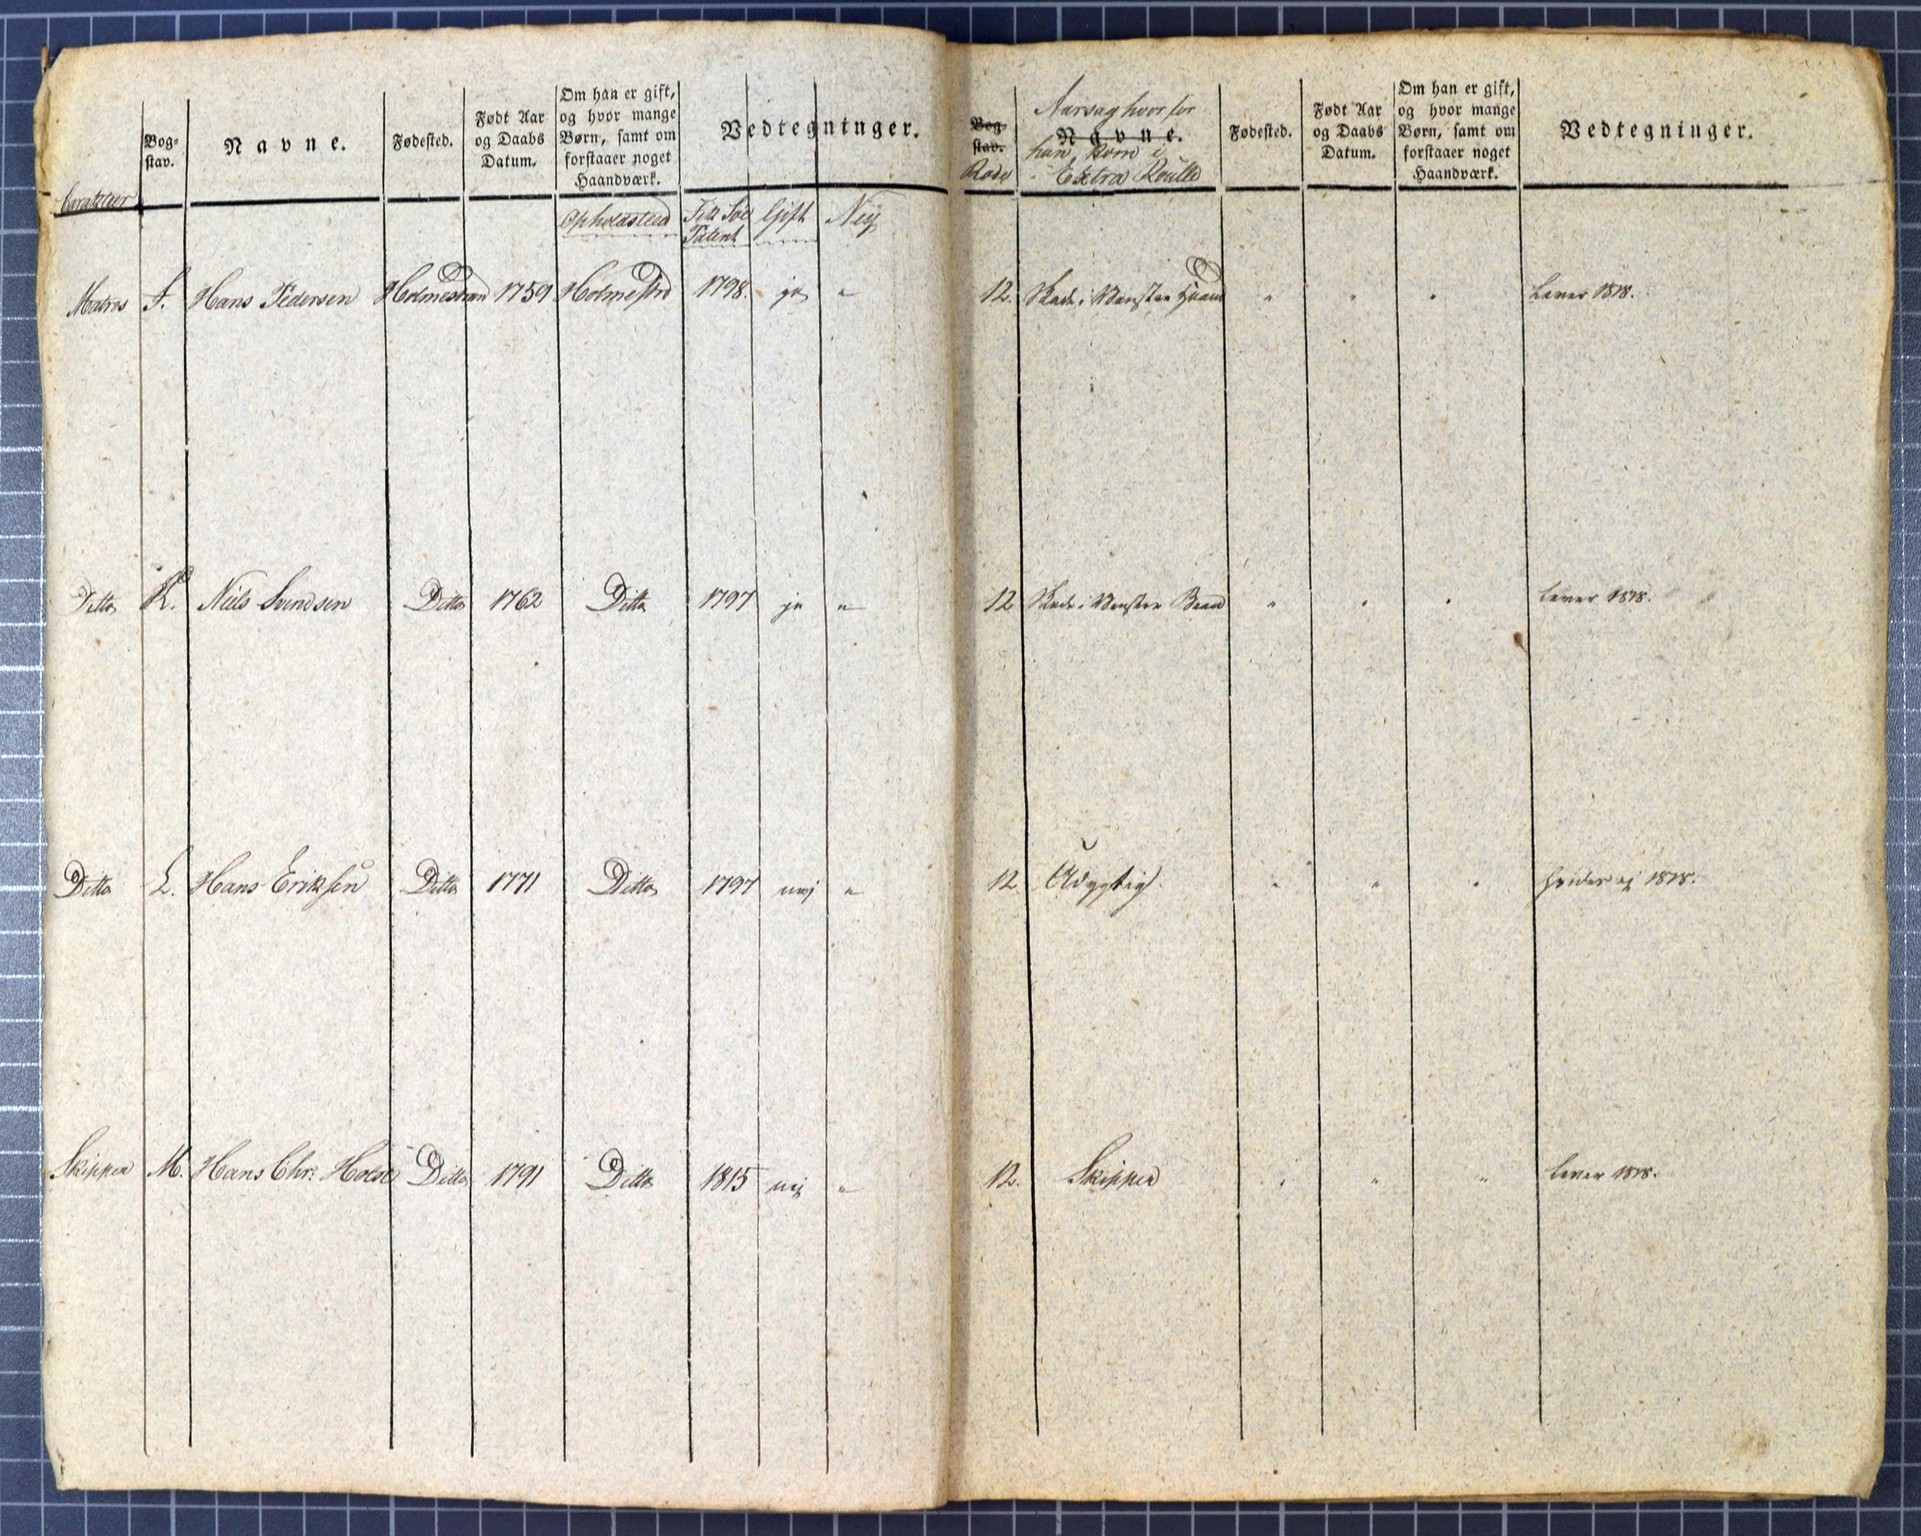 Bog-
stav.
Navne.
Fødested.
Født Aar
og Daabs
Datum.
Om han er gift,
og hvor mange
Børn, samt om
forstaaer noget
Haandværk.
Vedtegninger.
Opholdsted
Patent
Gift
Ney
Matros
Hans Pedersen Holmestrand 1759 Holmestrd 1798. ja "
Ditto K. Niels Svendsen Ditto 1762 Ditto 1797 ja "
Ditto L. Hans Eriksen Ditto 1771 Ditto 1797 nej "
Skipper M. Hans Chr. Ditto 1791 Ditto 1815 nej "
Bog-
stav.
Rode
Aarsag hvorfor
Navne.
han kom i
Extra Roulle
Fødested.
Født Aar
og Daabs
Datum.
Om han er gift,
og hvor mange
Børn, samt om
forstaaer noget
Haandværk.
Vedtegninger.
12. Skade i Venstre Haand " " " Lever 1818.
12 Skade i Venstre " " " Lever 1818.
12 Udygtig " " " 1818.
12. Skipper " " " Lever 1818.